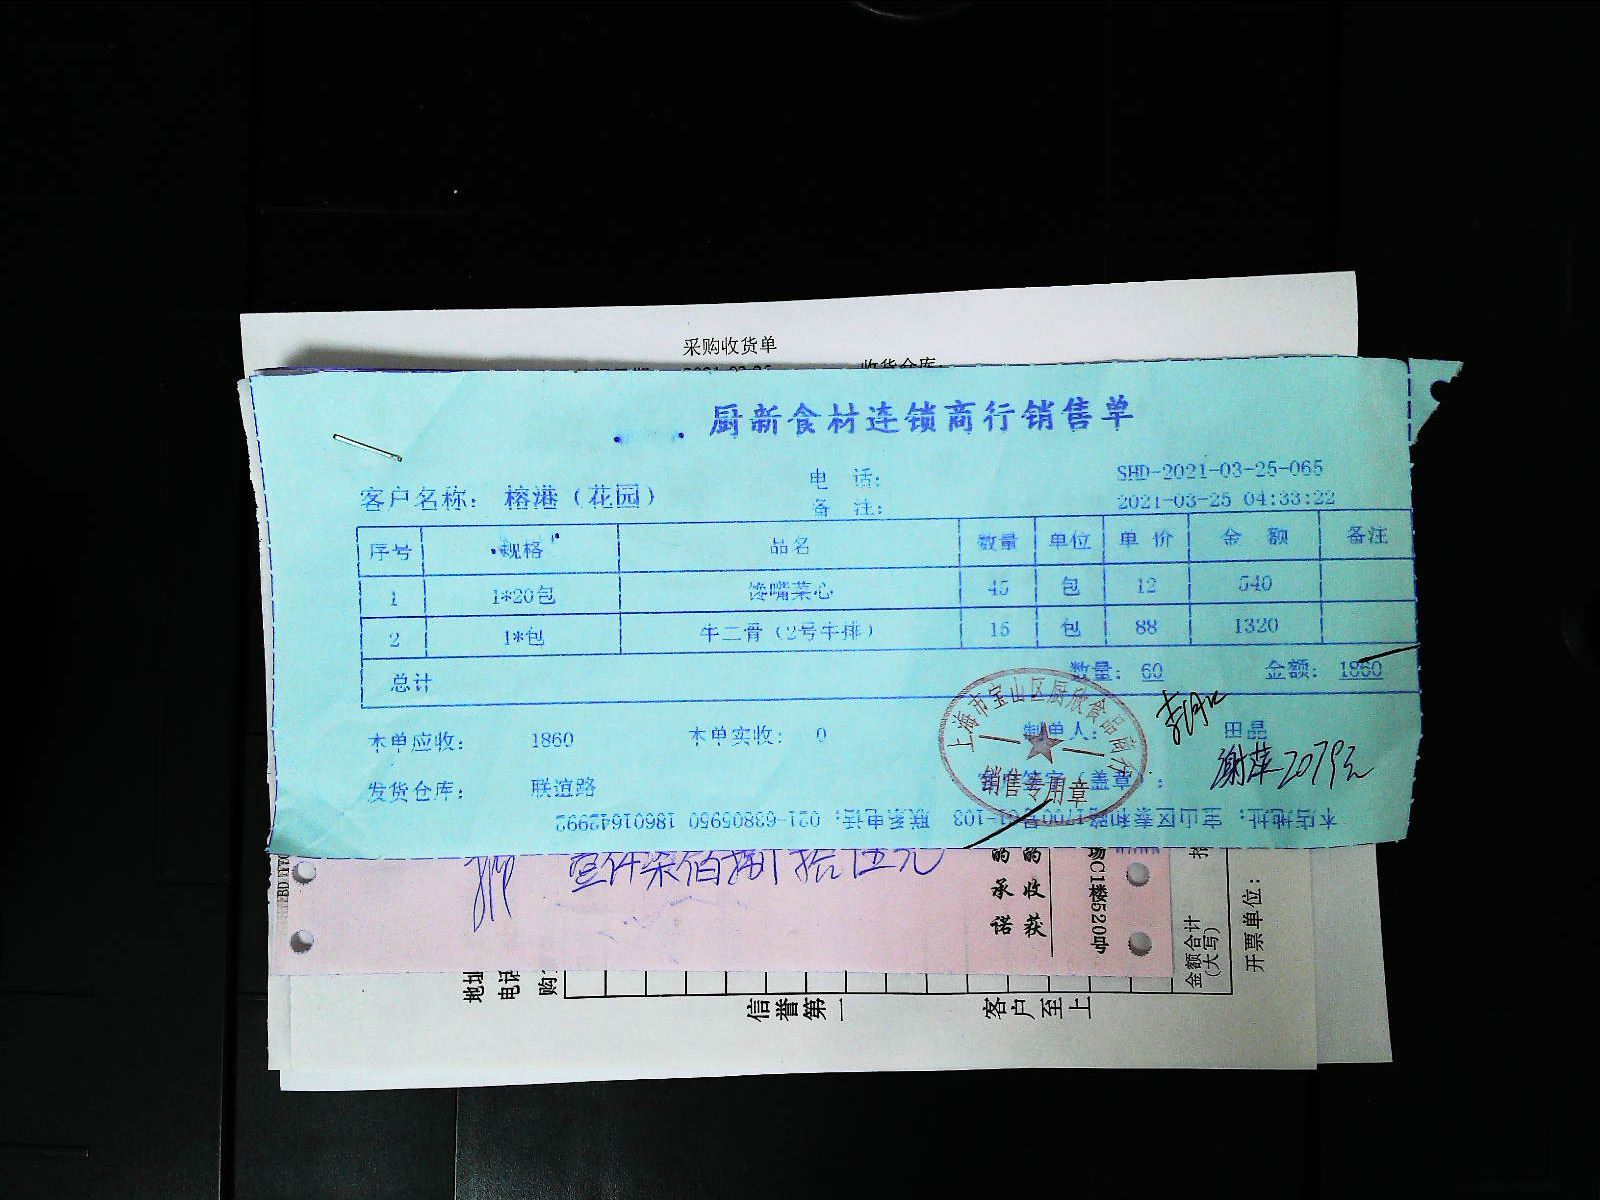 采购收货单
收货仓库:
厨新食材连锁商行销售单
电 话:
SHD-2021-03-25-065
客户名称: 榕港（花园）
备 注:
2021-03-25 04:33:22
序号 规格 品名 数量 单位 单 价 金 额 备注
1 1*20包 馋嘴菜心 45 包 12 540
2 1*包 牛二骨（2号牛排） 15 包 88 1320
总计 数量: 60 金额: 1860
本单应收: 1860 本单实收: 0 制单人: 田晶
谢萍2079元
发货仓库: 联谊路 （盖章）:
上海市宝山区厨欣食品商行
销售专用章
本店地址: 宝山区泰和路1700号01-103 联系电话: 021-63805950 18601642992
的承诺
的收获
场C1楼520中
金额合计
(大写)
开票单位:
地址
电话
购
信誉第一
客户至上